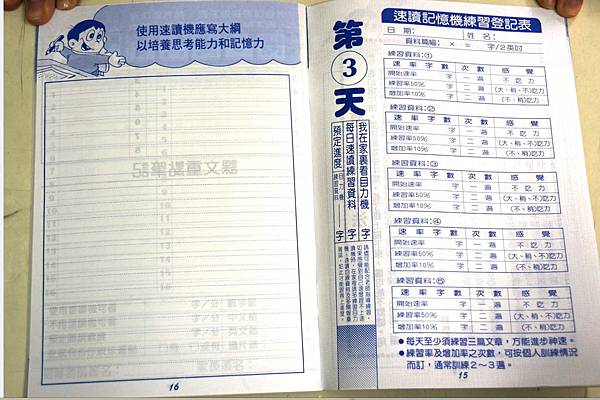 使用速讀機應寫大綱
以培養思考能力和記憶力
16
第3天
我在家裏看目力機 字
每日速讀練習資料 字
預定進度
速讀記憶機練習登記表
日期: 姓名:
資料篇幅: × = 字/2英吋
練習資料:①
速率字數 次數 感覺
開始速率 字 一遍 不吃力
練習率50% 字 二遍 (大、稍、不)吃力
增加率10% 字 二遍 (不、稍)吃力
練習資料:②
速率字數 次數 感覺
開始速率 字 一遍 不吃力
練習率50% 字 二遍 (大、稍、不)吃力
增加率10% 字 二遍 (不、稍)吃力
練習資料:③
速率字數 次數 感覺
開始速率 字 一遍 不吃力
練習率50% 字 二遍 (大、稍、不)吃力
增加率10% 字 二遍 (不、稍)吃力
練習資料:④
速率字數 次數 感覺
開始速率 字 一遍 不吃力
練習率50% 字 二遍 (大、稍、不)吃力
增加率10% 字 二遍 (不、稍)吃力
練習資料:⑤
速率字數 次數 感覺
開始速率 字 一遍 不吃力
練習率50% 字 二遍 (大、稍、不)吃力
增加率10% 字 二遍 (不、稍)吃力
●每天至少須練習三篇文章,方能進步神速。
●練習率及增加率之次數,可按個人訓練情況
而訂,通常訓練2~3遍。
15